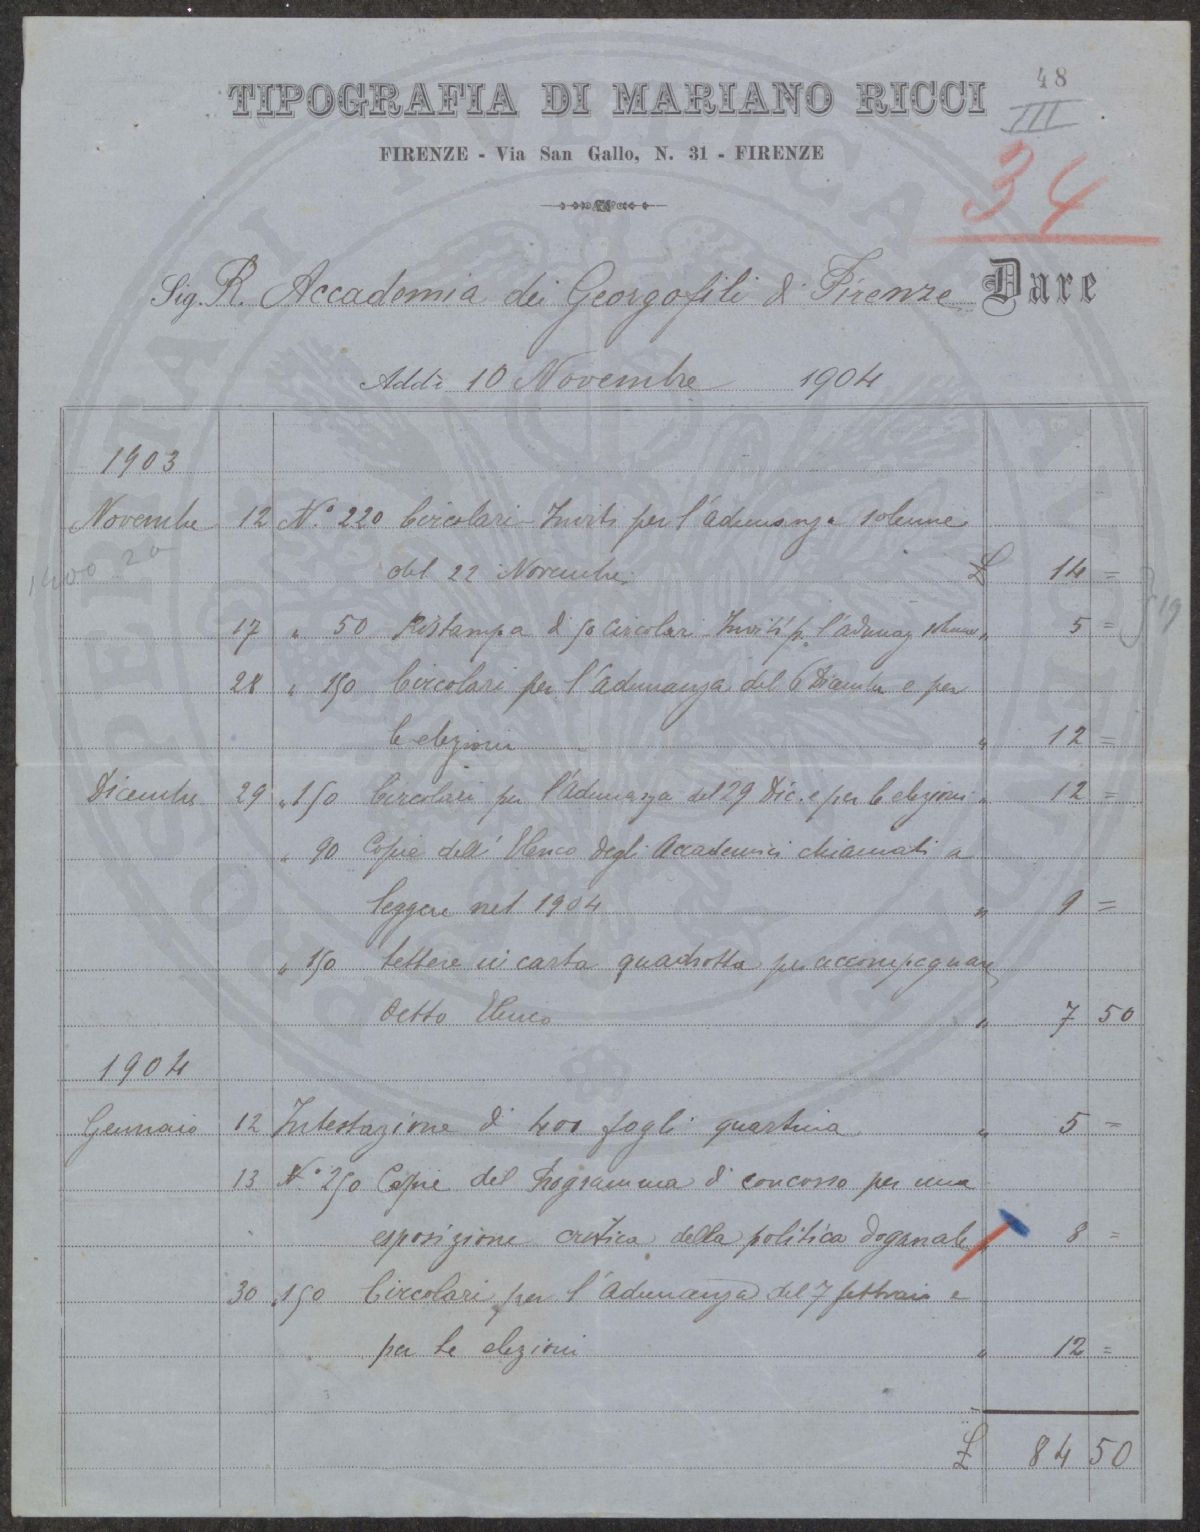 48
III
TIPOGRAFIA DI MARIANO RICCI
FIRENZE - Via San Gallo, N. 31 - FIRENZE
34
Sig. R. Accademia dei Georgofili di Firenze Dare
Addì 10 Novembre 1904
1903
Novembre 12 N.° 220 Circolari - Inviti per l'adunanza solenne
del 22 Novembre £ 14 =
17 " 50 Ristampa di 50 Circolari Inviti p. l'adunaz solenne " 5 =
28 " 150 Circolari per l'Adunanza del 6 Dicembre e per
le elezioni " 12 =
Dicembre 29 " 150 Circolari per l'Adunanza del 29 Dic. e per le elezioni " 12 =
" 90 Copie dell' Elenco degli Accademici chiamati a
leggere nel 1904 " 9 =
" 150 lettere in carta quadrotta per accompagnare
detto Elenco " 7 50
1904
Gennaio 12 Intestazione di 400 fogli quartina " 5 =
13 N.° 250 Copie del Programma di concorso per una
esposizione critica della politica doganale " 8 =
30 " 150 Circolari per l'Adunanza del 7 febbraio e
per le elezioni " 12 =
£ 84 50
PROSPERITATI PVBLICAE AVGENDAE